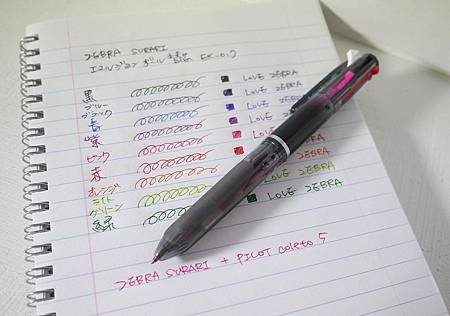 ZEBRA SURARI
エマルジョン ボール 替芯 EK-0.7
黒 LOVE ZEBRA
ブルー
ブラック LOVE ZEBRA
青 LOVE ZEBRA
紫 LOVE ZEBRA
ピンク ZEBRA
赤 ZEBRA
オレンジ ZEBRA
ライト
グリーン LOVE ZEBRA
緑 LOVE ZEBRA
ZEBRA SURARI + PILOT coleto 5